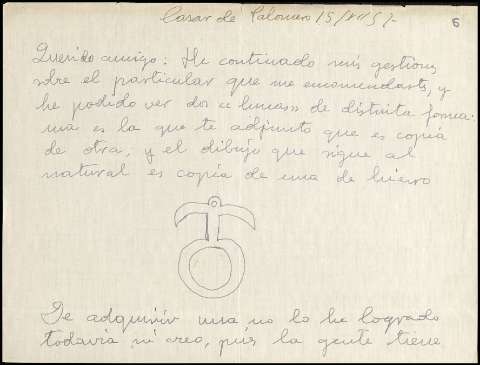 Casar de Palomero 15/VII/57
6
Querido amigo: He continuado mis gestiones
sbre el particular que me encomendaste, y
he podido ver dos o lunas de distinta forma.
una es la que te adjunto que es copia
de otra; y el dibujo que sigue al
natural es copia de una de hierro
De adquirir una no lo he logrado
todavía ni creo, pues la gente tiene